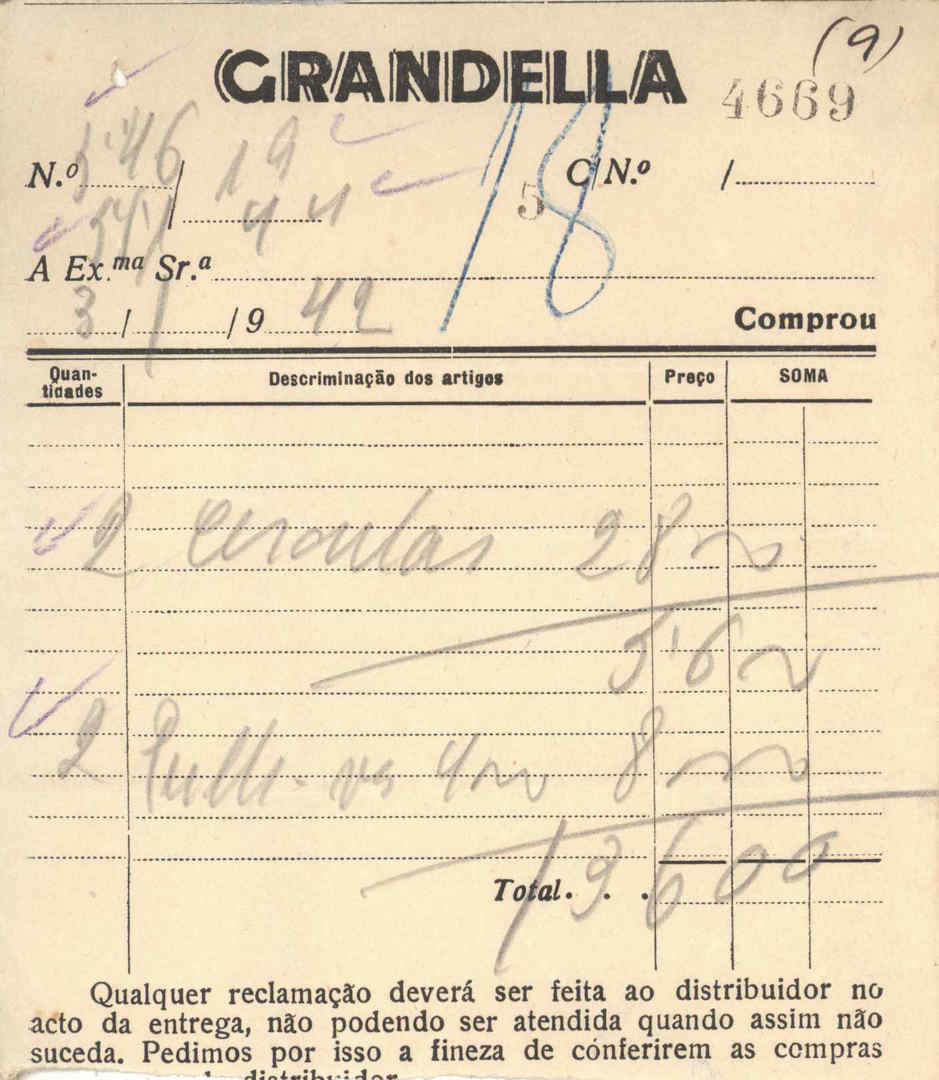 (9)
GRANDELLA
4669
N.º 546 / 19 C/N.º /
5
18
A Ex.ma Sr.ª
3 / 1 / 9 42 Comprou
Quantidades Descriminação dos artigos Preço SOMA
2 Ceroulas 28
56
2 8
Total. . . 13600
Qualquer reclamação deverá ser feita ao distribuidor no
acto da entrega, não podendo ser atendida quando assim não
suceda. Pedimos por isso a fineza de conferirem as compras
distribuidor.